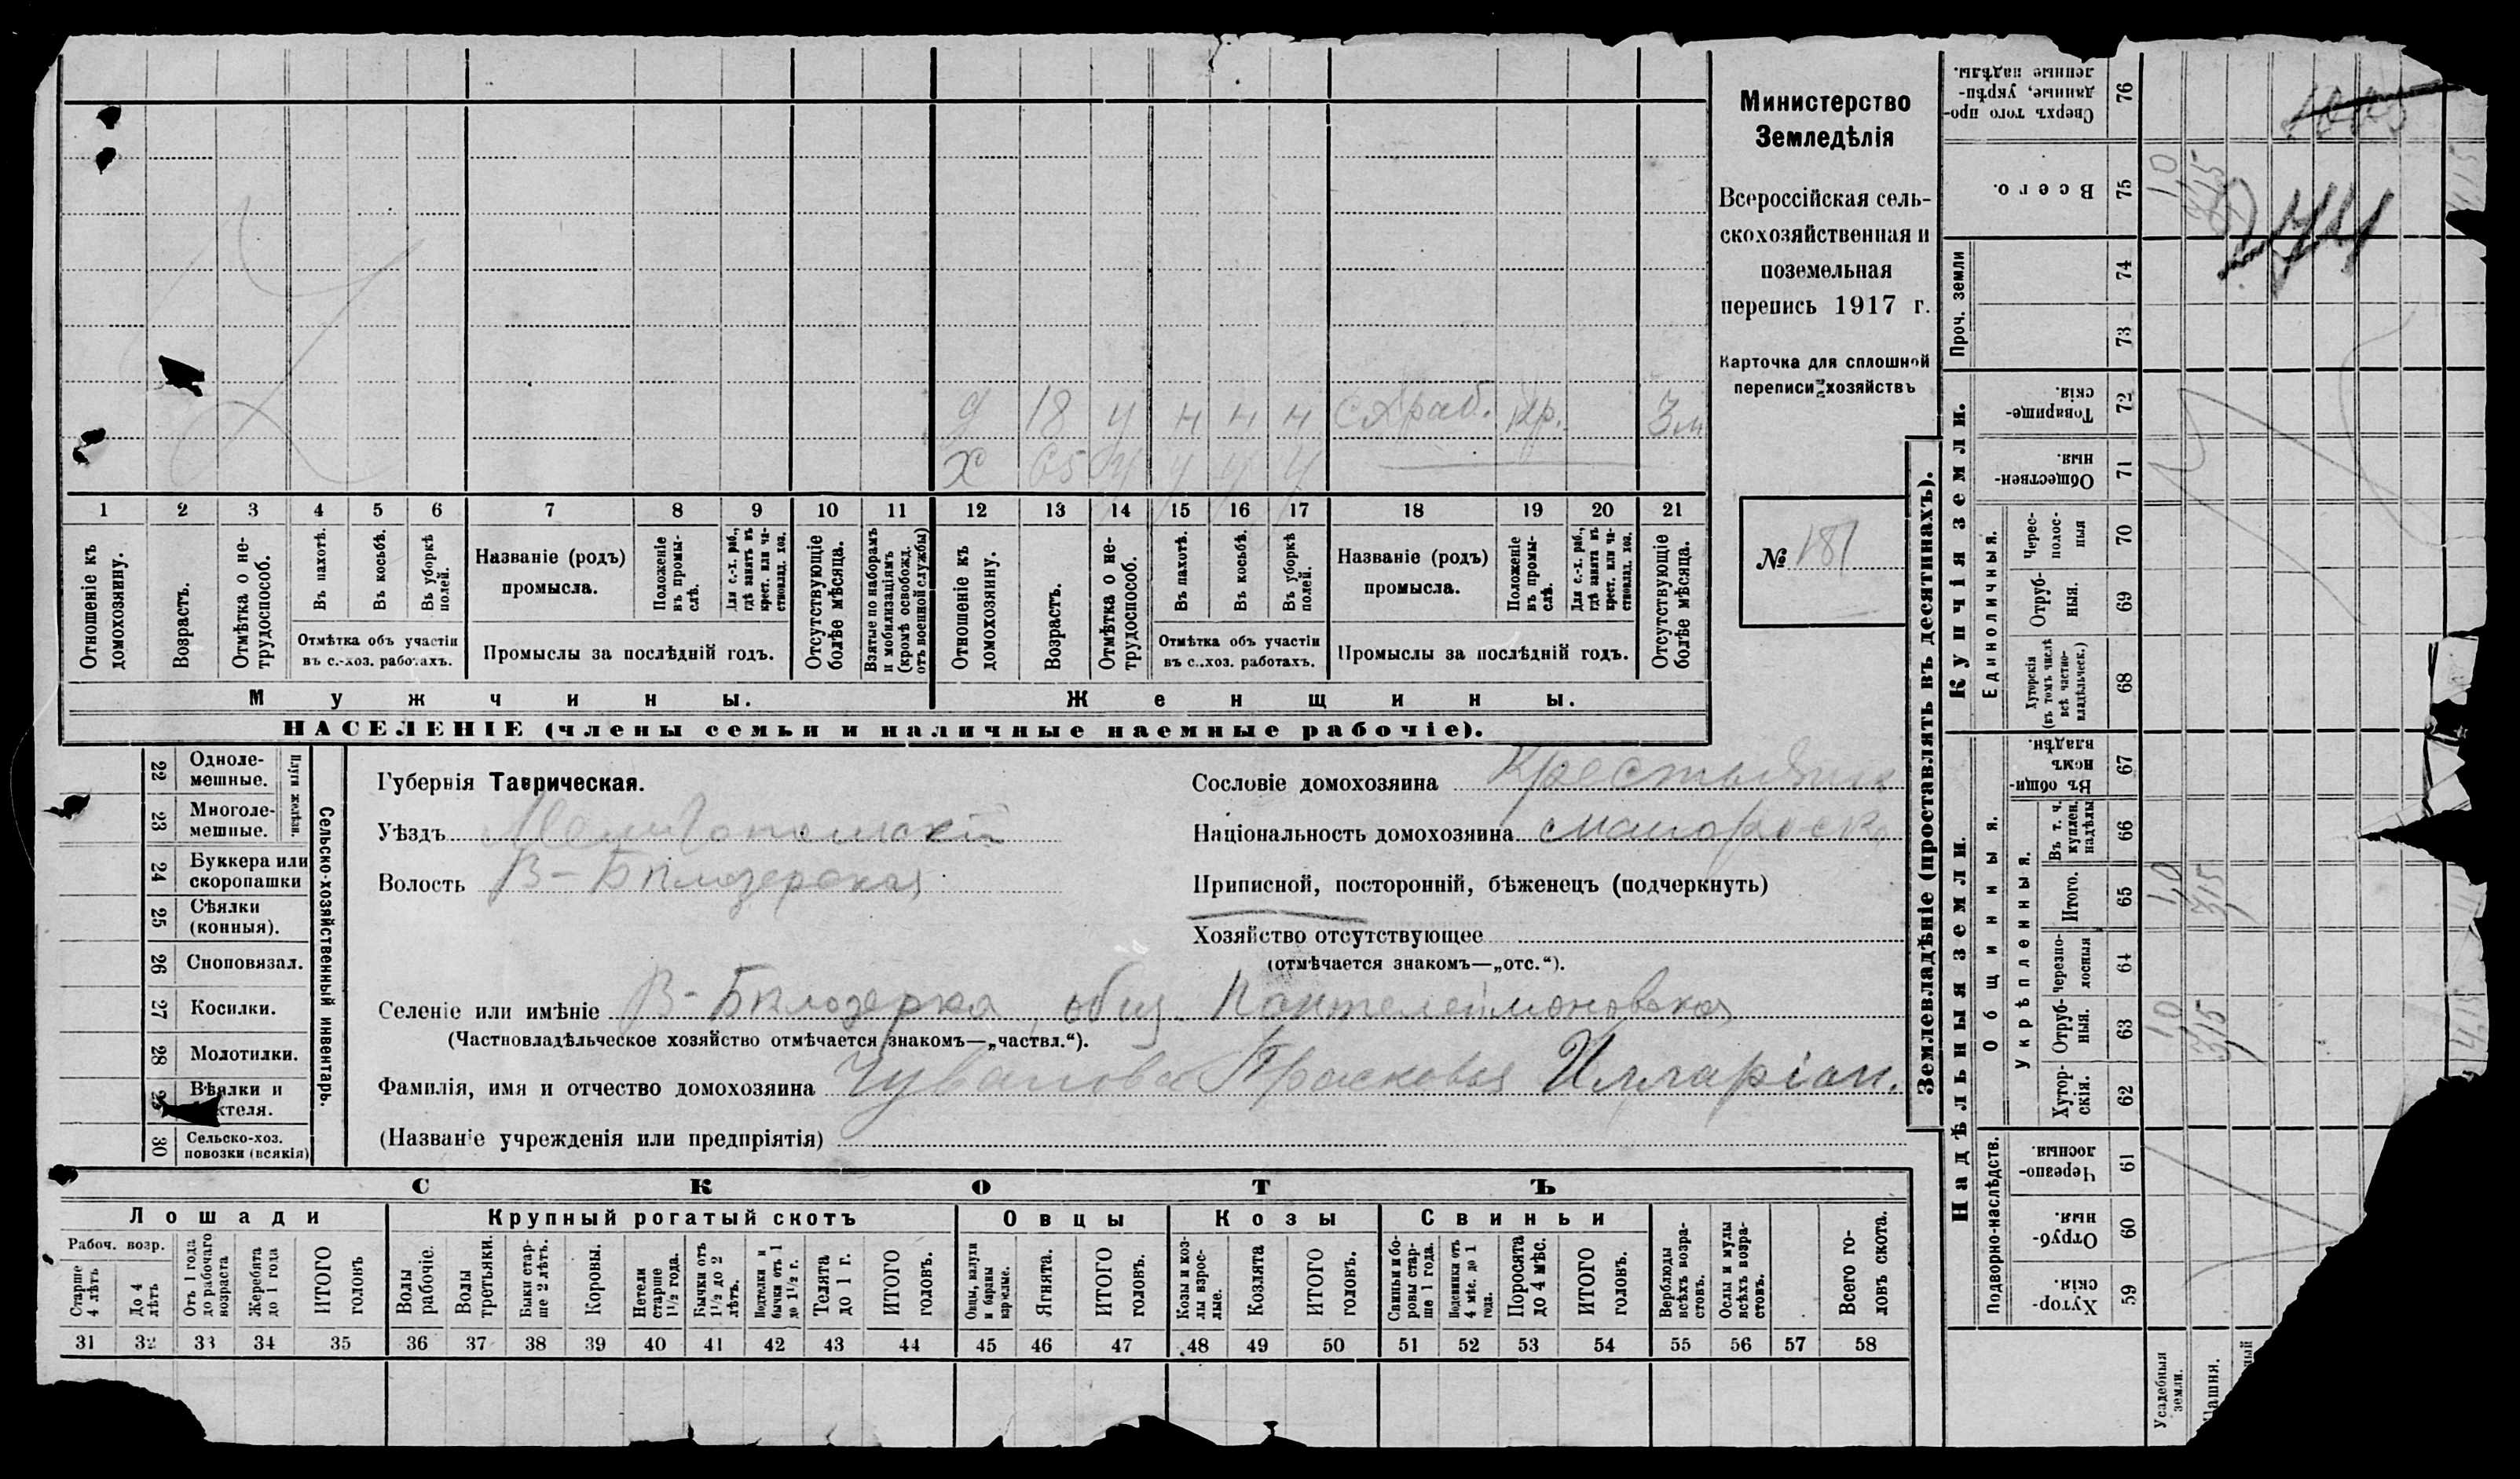 Министерство
Земледѣлія
Всероссійская сель-
скохозяйственная и
поземельная
перепись 1917 г.
Карточка для сплошной
переписи хозяйствъ
№ 181
д 18 ч н н н СХраб. Кр. 3 м
х 65 ч ч ч ч
1 2 3 4 5 6 7 8 9 10 11 12 13 14 15 16 17 18 19 20 21
Отношеніе къ домохозяину.
Возрастъ.
Отмѣтка о не-трудоспособ.
Въ пахотѣ.
Въ косьбѣ.
Въ уборкѣ полей.
Отмѣтка объ участіи
въ с.-хоз. работахъ.
Названіе (родъ)
промысла.
Положеніе въ промы-слѣ.
Для с.-х. раб., гдѣ занятъ въ крест. или ча-стновлад. хоз.
Промыслы за послѣдній годъ.
Отсутствующіе болѣе мѣсяца.
Взятые по наборамъ и мобилизаціямъ (кромѣ освобожд. отъ военной службы)
Отношеніе къ домохозяину.
Возрастъ.
Отмѣтка о не-трудоспособ.
Въ пахотѣ.
Въ косьбѣ.
Въ уборкѣ полей.
Отмѣтка объ участіи
въ с..хоз. работахъ.
Названіе (родъ)
промысла.
Положеніе въ промы-слѣ.
Для с.-х. раб., гдѣ занята въ крест. или ча-стновлад. хоз.
Промыслы за послѣдній годъ.
Отсутствующіе болѣе мѣсяца.
Мужчины. Женщины.
НАСЕЛЕНІЕ (члены семьи и наличные наемные рабочіе).
Сельско-хозяйственный инвентарь.
Плуги желѣзн.
22 Одноле-мешные.
23 Многоле-мешные.
24 Буккера или скоропашки
25 Сѣялки (конныя).
26 Сноповязал.
27 Косилки.
28 Молотилки.
Вѣялки и
30 Сельско-хоз. повозки (всякія)
Губернія Таврическая.
Уѣздъ Мелитопольскій
Волость В-Бѣлозерская
Сословіе домохозяина Крестьянка
Національность домохозяина малоросска
Приписной, посторонній, бѣженецъ (подчеркнуть)
Хозяйство отсутствующее
(отмѣчается знакомъ—„отс.“).
Селеніе или имѣніе В-Бѣлозерка, общ. Пантелеймоновская
(Частновладѣльческое хозяйство отмѣчается знакомъ—„частвл.“).
Фамилія, имя и отчество домохозяина Чувалова Прасковья Илларіон.
(Названіе учрежденія или предпріятія)
СКОТЪ
Лошади Крупный рогатый скотъ Овцы Козы Свиньи
Рабоч. возр.
Старше 4 лѣтъ
До 4 лѣтъ
Отъ 1 года до рабочаго возраста
Жеребята до 1 года
ИТОГО головъ
Волы рабочіе.
Волы третьяки.
Быки стар-ше 2 лѣтъ.
Коровы.
Нетели старше 1½ года.
Бычки отъ 1½ до 2 лѣтъ.
Подтелки и бычки отъ 1 до 1½ г.
Телята до 1 г.
ИТОГО головъ.
Овцы, валухи и бараны взрослые.
Ягнята.
ИТОГО головъ.
Козы и коз-лы взрос-лые.
Козлята
ИТОГО головъ.
Свиньи и бо-ровы стар-ше 1 года.
Подсвинки отъ 4 мѣс. до 1 года.
Поросята до 4 мѣс.
ИТОГО головъ.
Верблюды всѣхъ возра-стовъ.
Ослы и мулы всѣхъ возра-стовъ.
Всего го-ловъ скота.
31 32 33 34 35 36 37 38 39 40 41 42 43 44 45 46 47 48 49 50 51 52 53 54 55 56 57 58
Землевладѣніе (проставлять въ десятинахъ).
Надѣльныя земли.
Купчія земли.
Проч. земли
Подворно-наслѣдств.
Общинныя.
Укрѣпленныя.
Единоличныя.
59 Хутор-скія.
60 Отруб-ныя.
61 Черезпо-лосныя.
62 Хутор-скія.
63 Отруб-ныя.
64 Черезпо-лосныя
65 Итого.
66 Въ т. ч. куплен. надѣлы
67 Въ общи-номъ владѣн.
68 Хуторскія (въ томъ числѣ всѣ частно-владѣльческ.)
69 Отруб-ныя.
70 Черес-полос-ныя
71 Обществен-ныя.
72 Товарище-скія.
73
74
75 Всего.
76 Сверхъ того про-данные, укрѣп-ленные надѣлы.
Усадебныя земли.
Пашня.
10 10 10
315 315 315